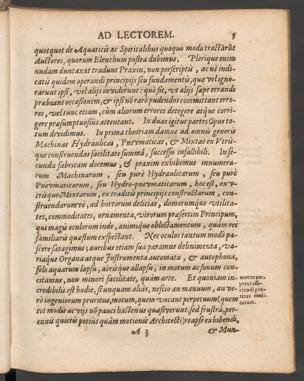 AD LECTOREM. 5
quotquot de Aquaticis ac Spiritalibus quoquo modo tractârūt
Auctores, quorum Elenchum postea dabimus. Plerique enim
nudam duntaxat tradunt Praxin, non perscriptis, ac ne indi-
catis quidem operandi principijs seu fundamentis, quæ vel igno-
rarunt ipsi, vel alijs inviderunt: quò fit, vt alijs sæpe errandi
præbeant occasionem, & ipsi nō rarò pudendos committant erro-
res, vel tunc etiam, cùm aliorum errores detegere atque corri-
gere præsumptuosiùs attentant. In duas igitur partes Opus to-
tum dividimus. In prima theoriam damus ad omnis generis
Machinas Hydraulicas, Pneumaticas, & Mixtas ex Vtris-
que construendas facilitate summâ, successu infallibili. In se-
cunda fabricam docemus, & praxin exhibemus innumera-
rum Machinarum, seu purè Hydraulicarum, seu purè
Pneumaticarum, seu Hydro-pneumaticarum, hoc est, ex v-
trisque Mixtarum, ex traditis principijs constructarum, con-
struendarumvè, ad hortorum delicias, domorumque vtilita-
tes, commoditates, ornamenta, virorum præsertim Principum,
qui magis oculorum inde, animique oblectamentum, quàm rei
familiaris quæstum exspectant. Nec oculos tantùm modò pa-
scere satagimus; auribus etiam sua paramus delinimenta, va-
riaque Organa atque Instrumenta automata, & autophona,
solo aquarum lapsu, aërisque allapsu, in motum ac sonum con-
citamus, non minori facilitate, quàm arte. Et quoniam in-
credibilis est hodie, si unquam aliàs, nescio an manuum, an ve-
rò ingeniorum pruritus, motum, quem vocant perpetuum (quem
tot modis ac vijs nō pauci hactenus quæsiverunt, sed frustrà, per-
ennis quietis potiùs quàm motionis Architecti) reapse exhibendi,
Motus per-
petui effi-
ciendi pru-
ritus multo-
rum.
A 3 & Mun-